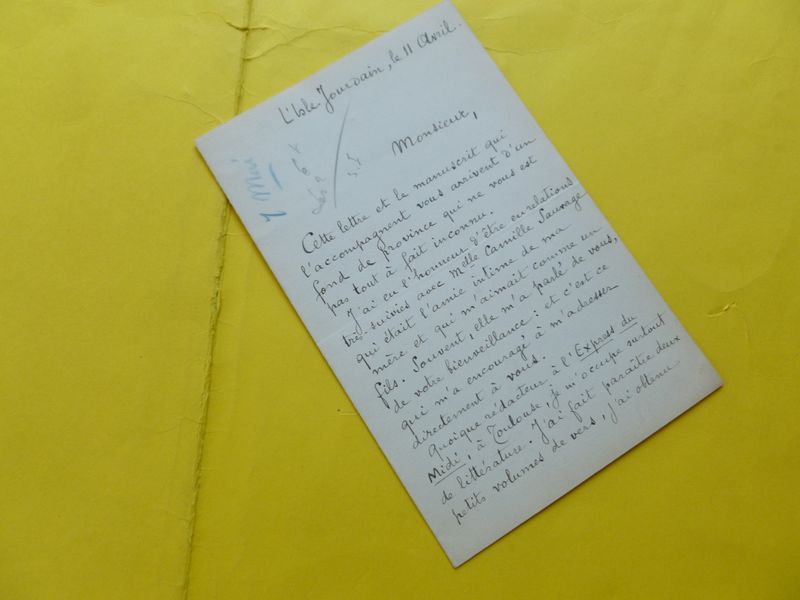 L'Isle Jourdain, le 11 Avril.
Monsieur,
Cette lettre et le manuscrit qui
l'accompagnent vous arrivent d'un
fond de province qui ne vous est
pas tout à fait inconnu.
J'ai eu l'honneur d'être en relations
très suivies avec Melle Camille Sauvage
qui était l'amie intime de ma
mère et qui m'aimait comme un
fils. Souvent, elle m'a parlé de vous,
de votre bienveillance: et c'est ce
qui m'a encouragé à m'adresser
directement à vous.
Quoique rédacteur à l'Express du
Midi, à Toulouse, je m'occupe surtout
de littérature. J'ai fait paraître deux
petits volumes de vers, j'ai obtenu